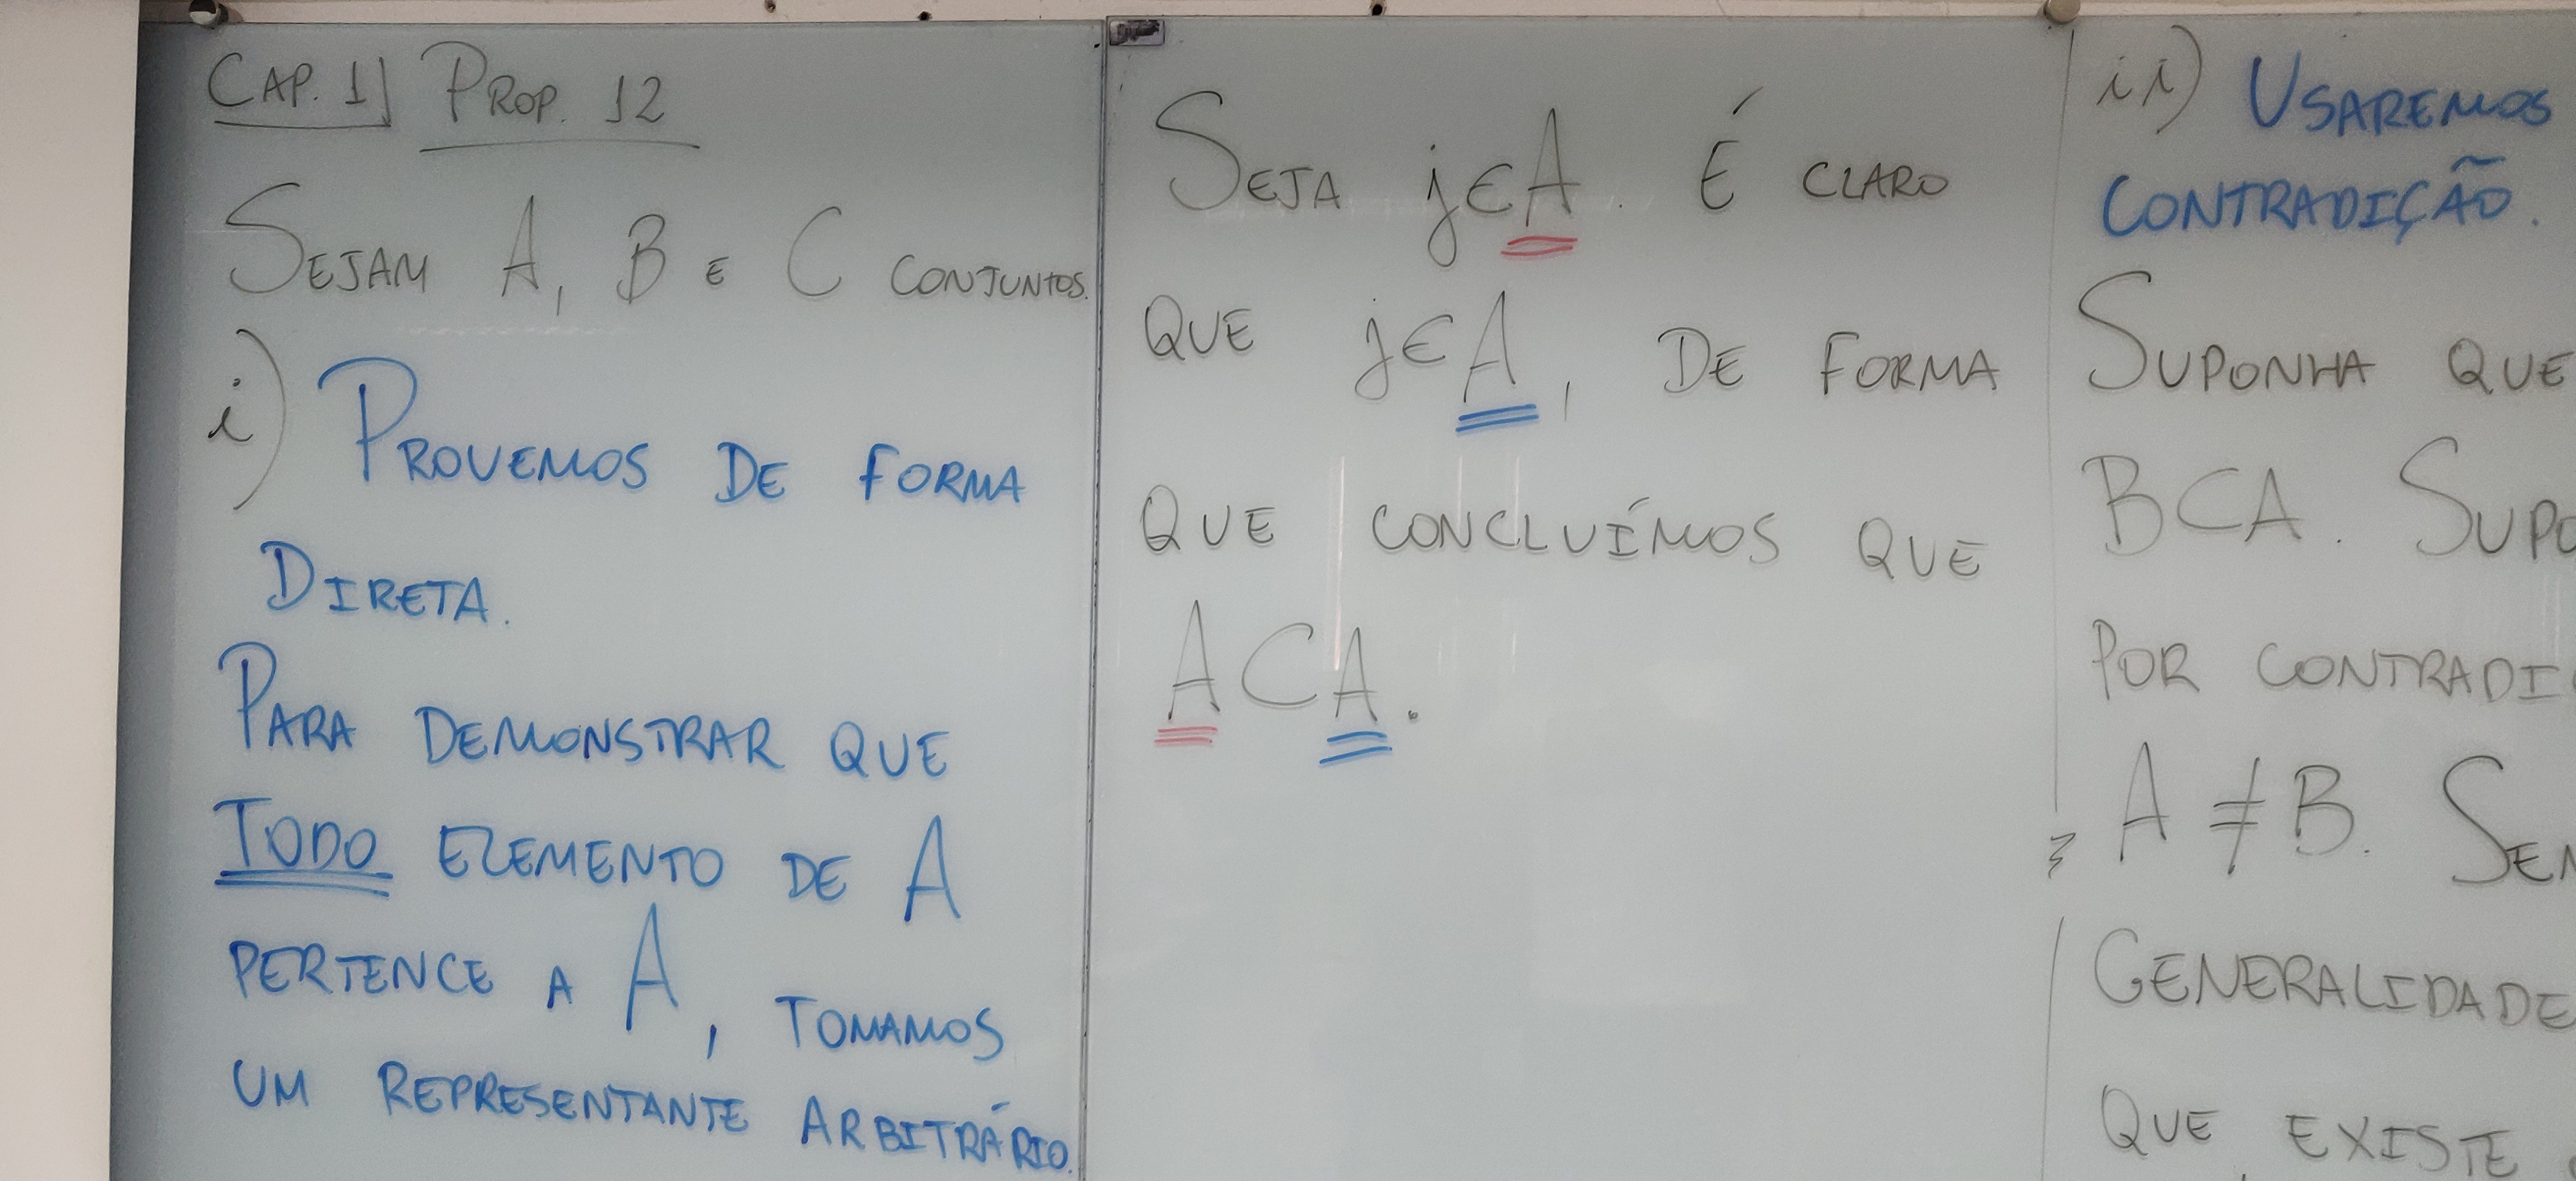 CAP. 1 PROP. 12
SEJAM A, B E C CONJUNTOS.
i) PROVEMOS DE FORMA
DIRETA.
PARA DEMONSTRAR QUE
TODO ELEMENTO DE A
PERTENCE A A, TOMAMOS
UM REPRESENTANTE ARBITRÁRIO.
SEJA j∈A. É CLARO
QUE j∈A, DE FORMA
QUE CONCLUÍMOS QUE
A⊂A.
ii) USAREMOS
CONTRADIÇÃO.
SUPONHA QUE
B⊂A. SUPO
POR CONTRADI
A ≠ B. SEM
GENERALIDADE
QUE EXISTE